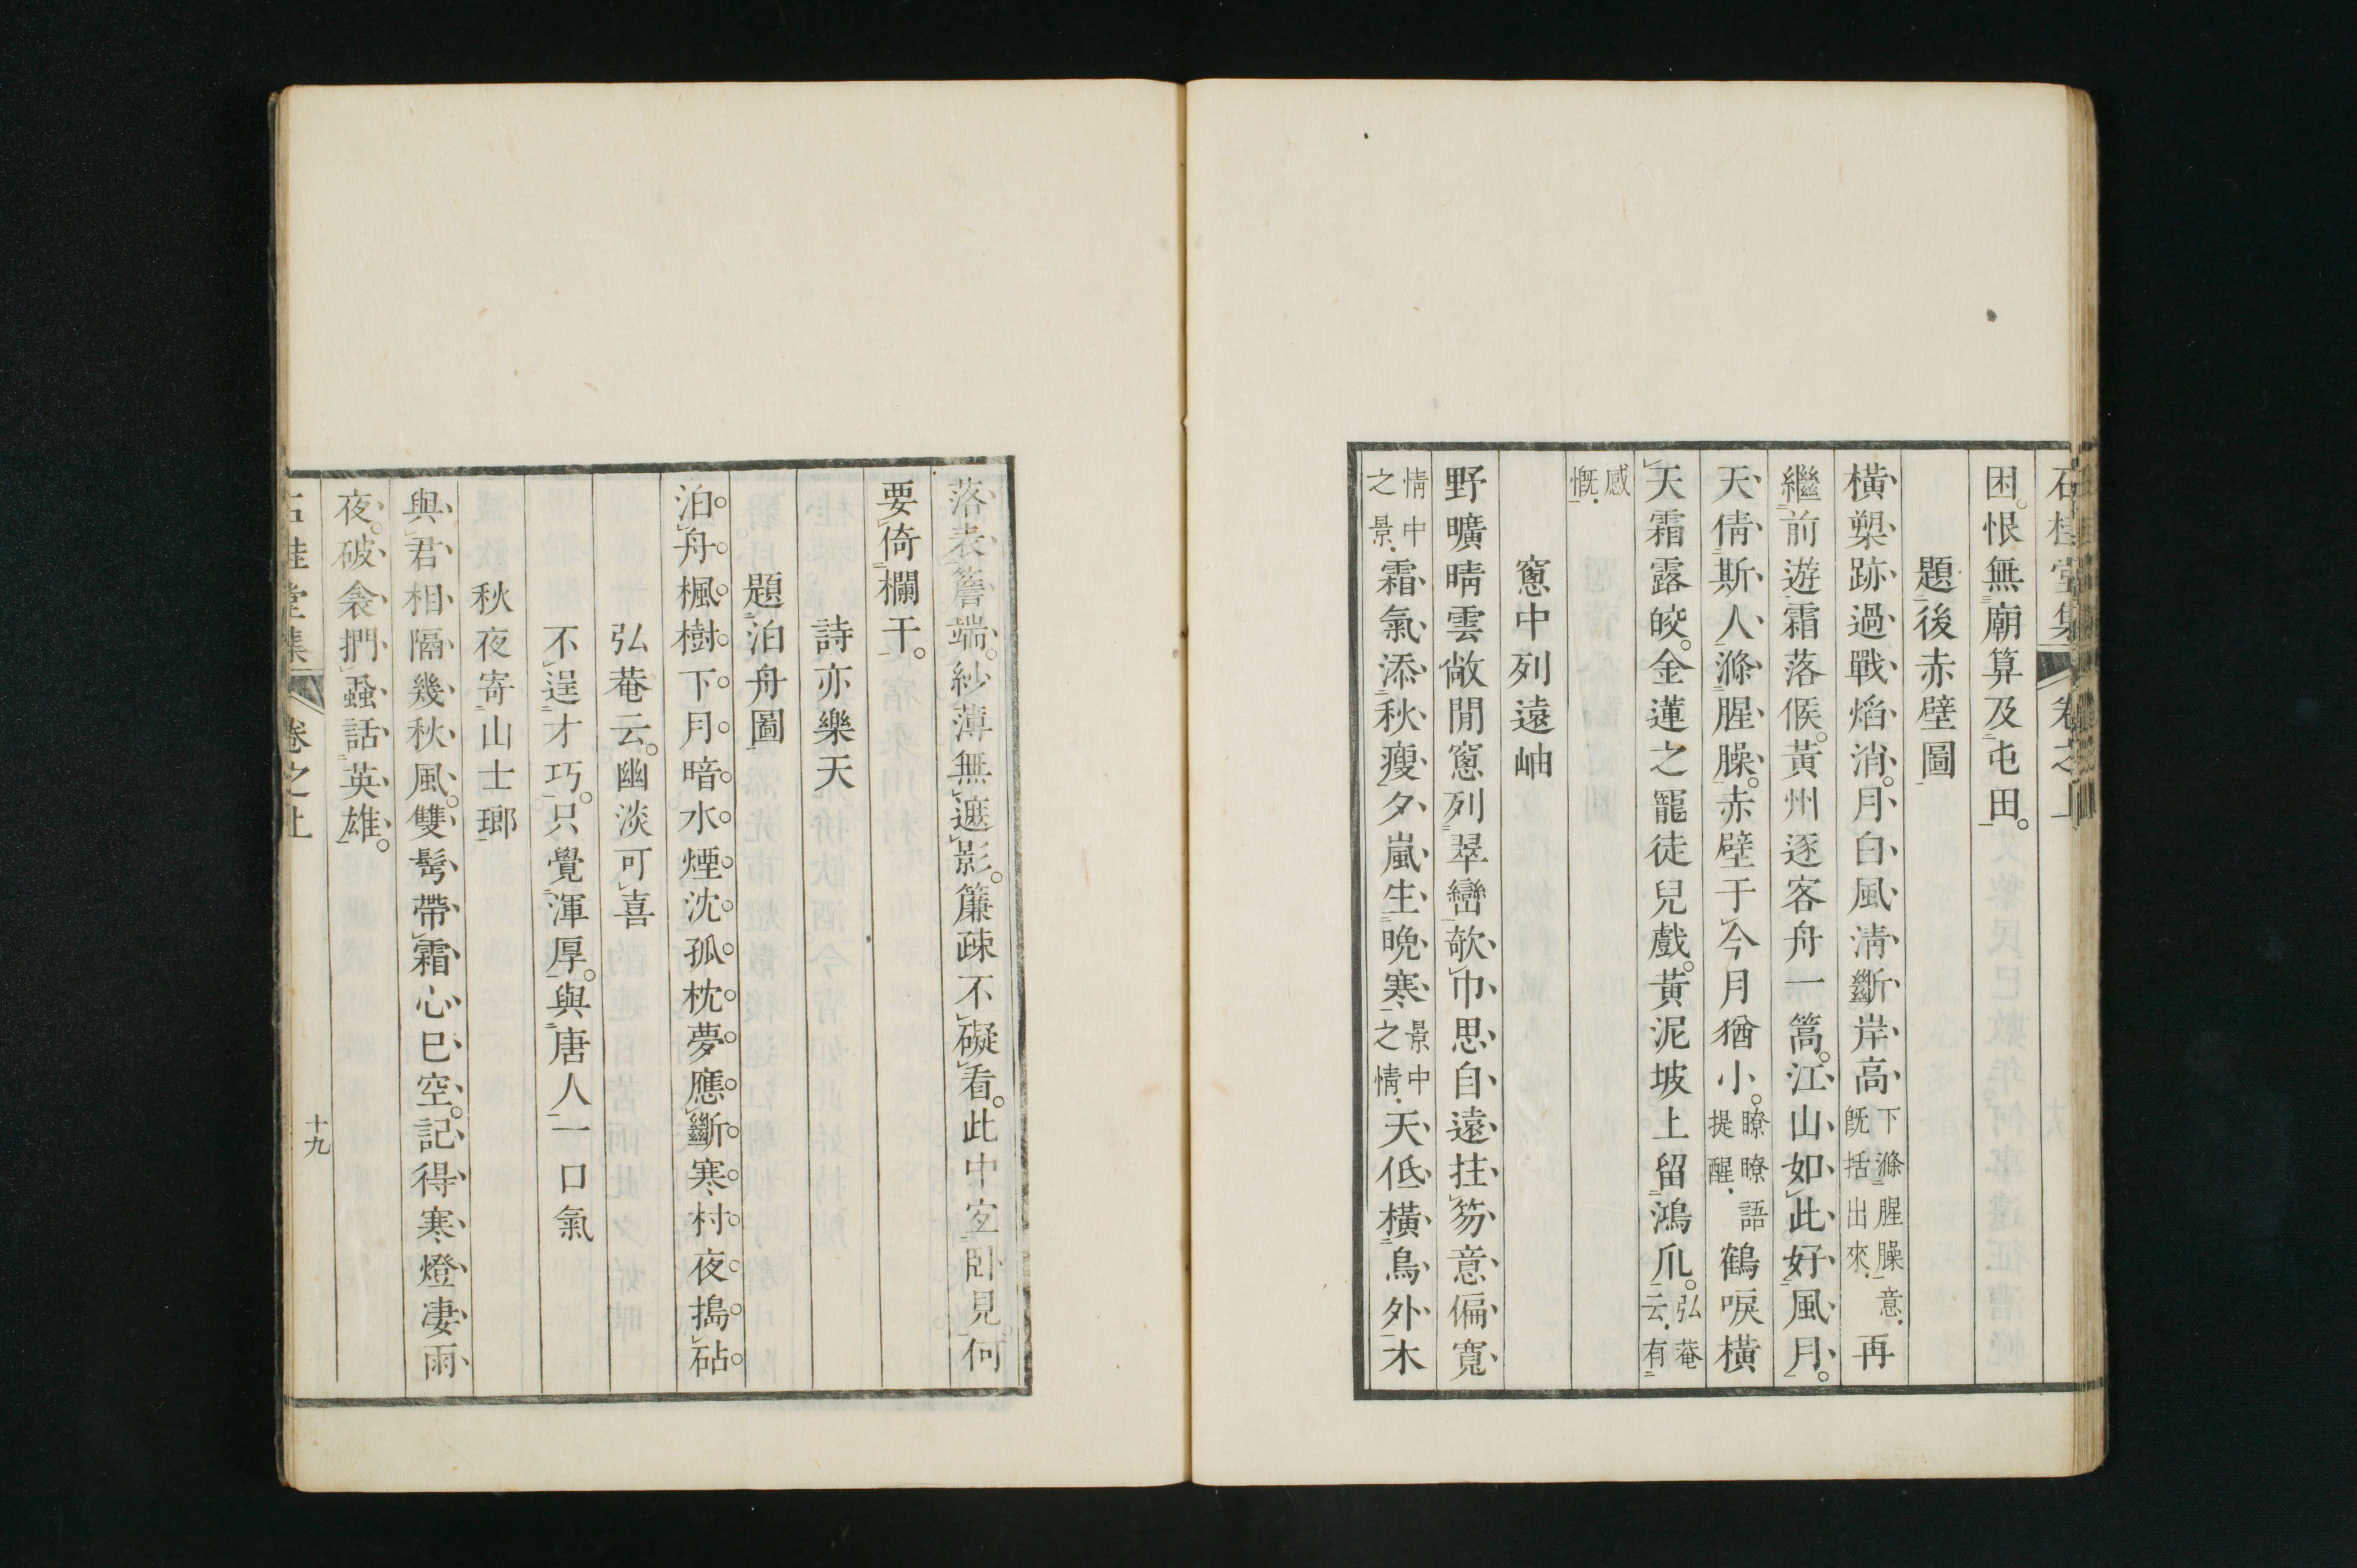 石桂堂集 卷之上
困。恨無廟算及屯田。
題後赤壁圖
橫槊跡過戰焰消。月白風淸斷岸高下滌腥臊意。既括出來再
繼前遊霜落候。黃州逐客舟一篙。江山如此好風月。
天倩斯人滌腥臊。赤壁于今月猶小。瞭瞭語提醒鶴唳橫
天霜露皎。金蓮之寵徒兒戲。黃泥坡上留鴻爪。弘菴云有
感慨
窻中列遠岫
野曠晴雲敞閒窻列翠巒欹巾思自遠拄笏意偏寬
情中之景霜氣添秋瘦夕嵐生晩寒景中之情天低橫鳥外木
落表簷端。紗薄無遮影。簾疎不礙看。此中宜臥見。何
要倚欄干。
詩亦樂天
題泊舟圖
泊舟楓樹下月暗水煙沈孤枕夢應斷寒村夜搗砧
弘菴云。幽淡可喜
不逞才巧。只覺渾厚。與唐人一口氣
秋夜寄山士瑯
與君相隔幾秋風。雙髩帶霜心已空。記得寒燈凄雨
夜。破衾捫蝨話英雄。
石桂堂集 卷之上 十九